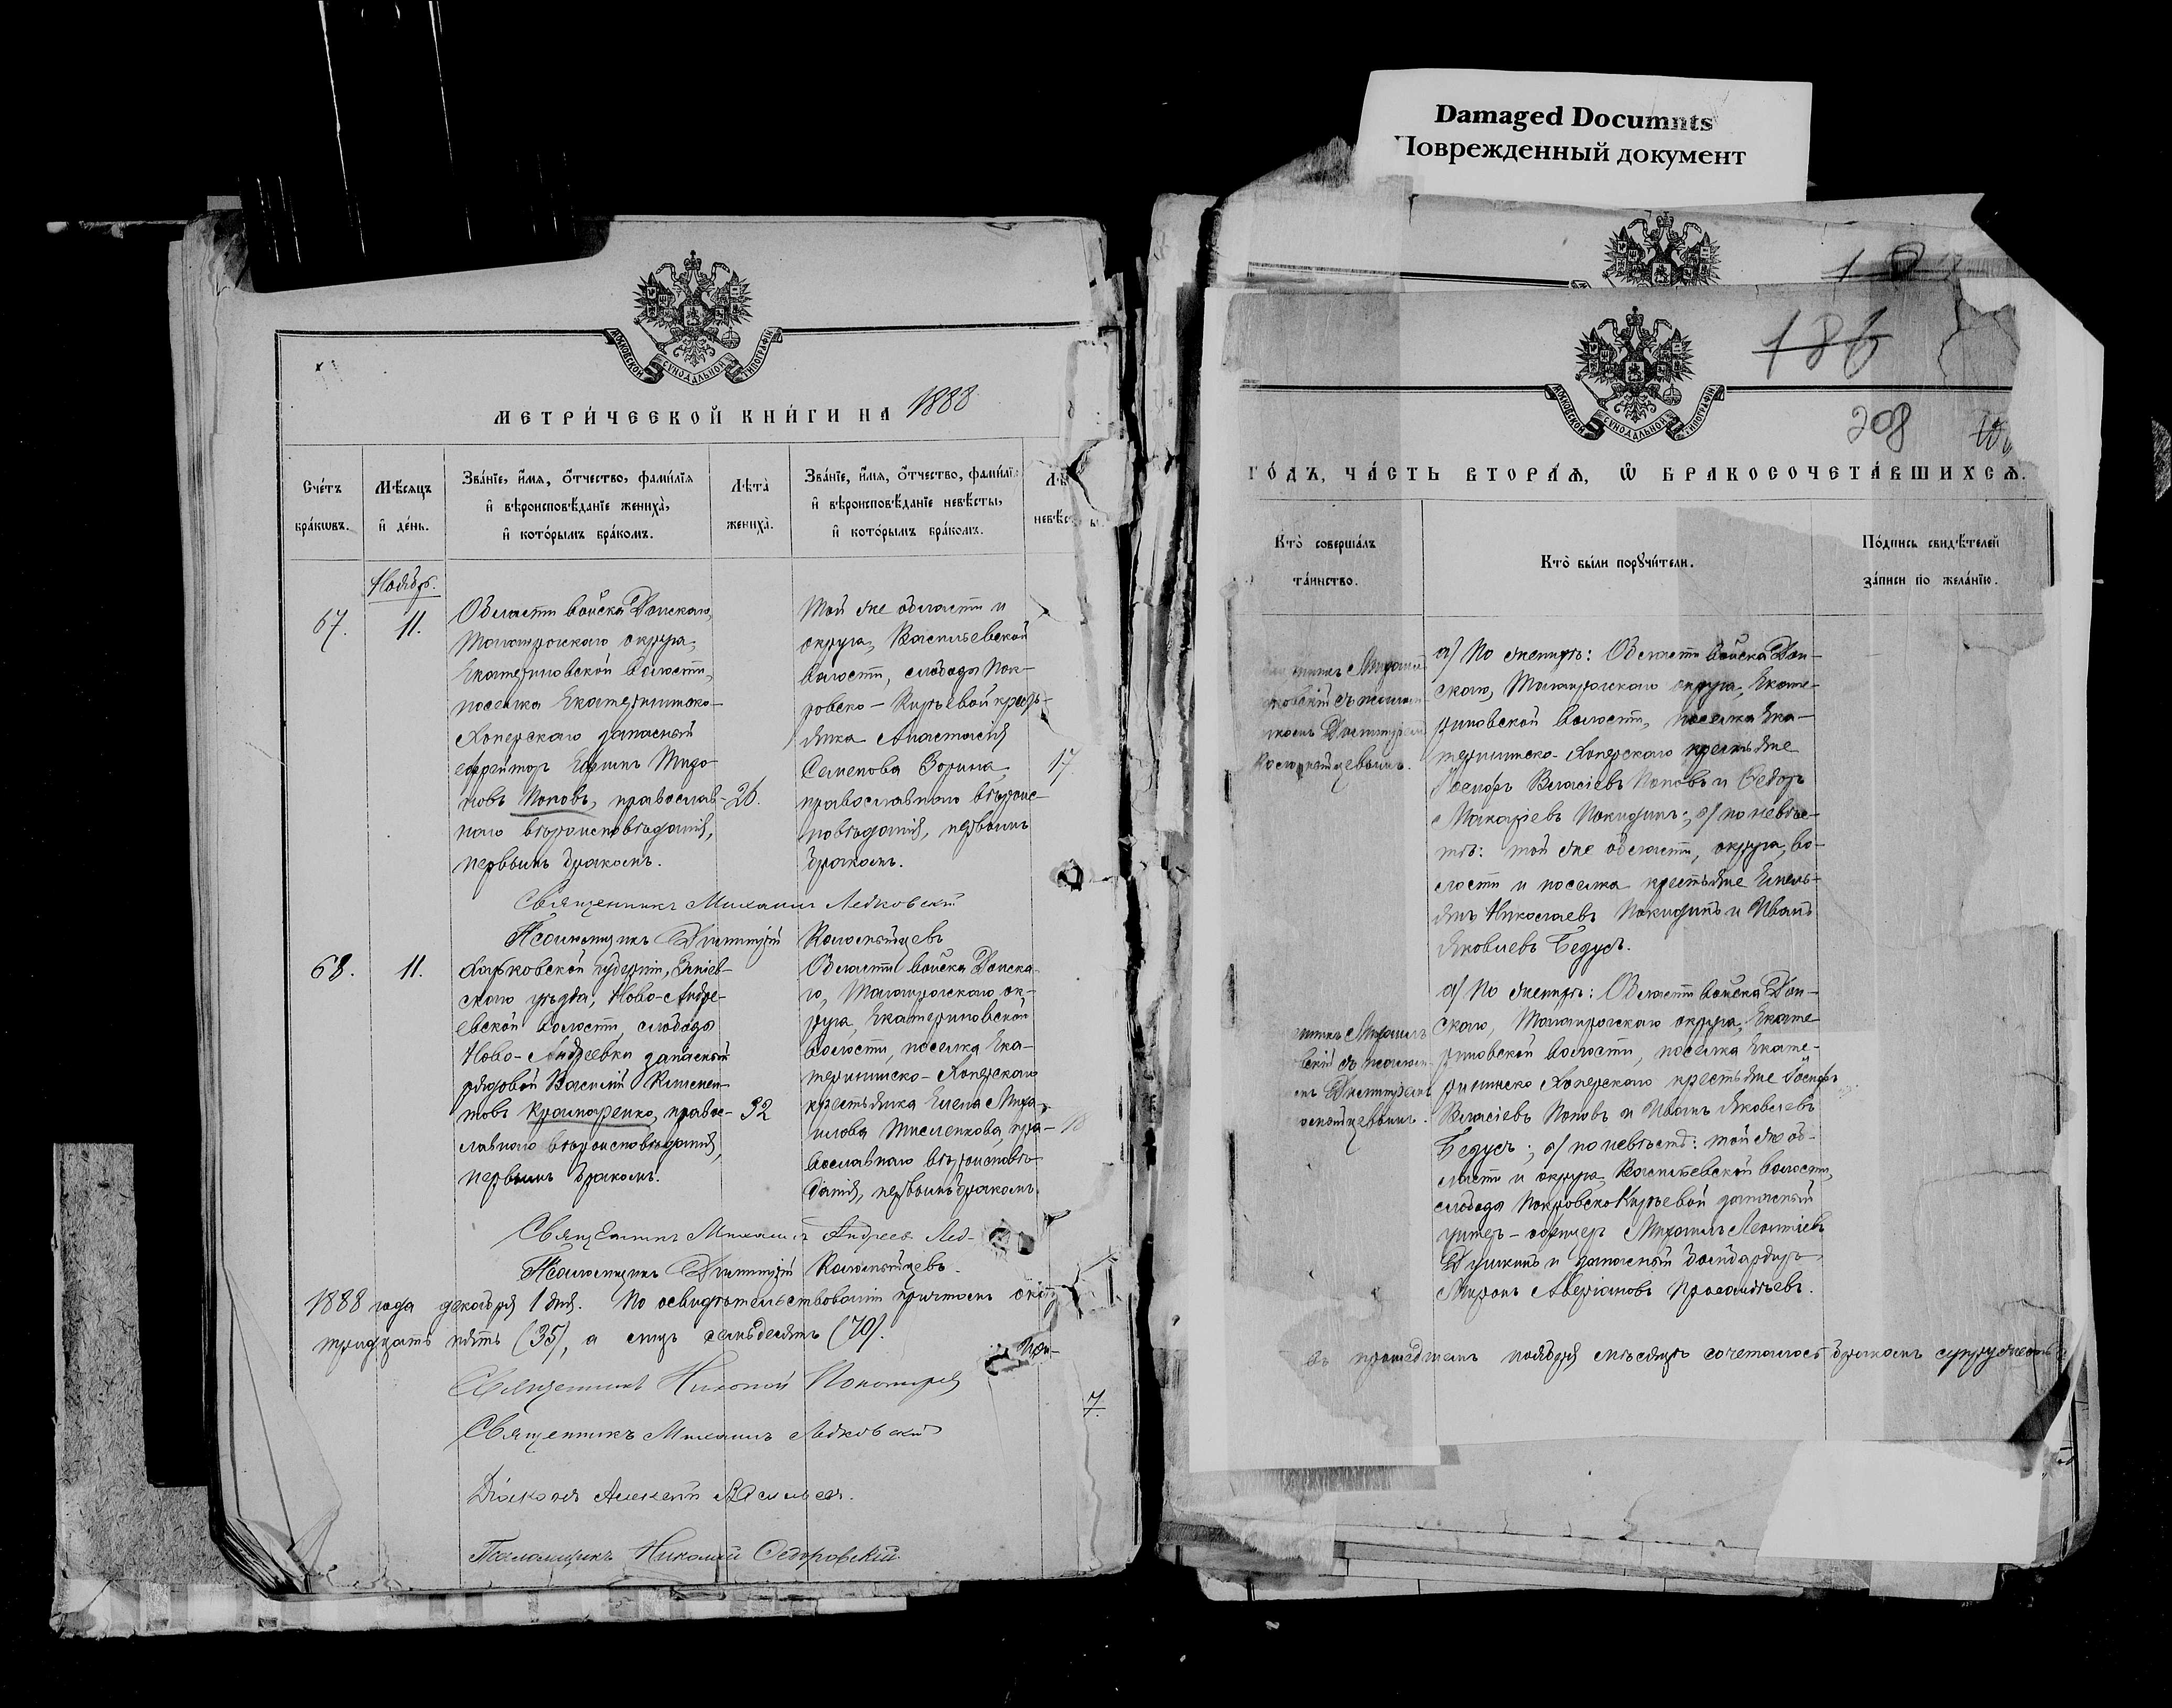 Damaged Documnts
Поврежденный документ
МОСКОВСКОЙ СѴНОДАЛЬНОЙ ТИПОГРАФІИ
МЕТРИЧЕСКОЙ КНИГИ НА 1888
Счетъ браковъ.
Мѣсяцъ и день.
Званіе, имя, отчество, фамилія
и вѣроисповѣданіе жениха,
и которымъ бракомъ.
Лѣта жениха.
Званіе, имя, отчество, фамилія
и вѣроисповѣданіе невѣсты,
и которымъ бракомъ.
Ноябрь.
67.
11.
Области войска Донскаго,
Таганрогскаго округа,
Екатериновской волости,
поселка Екатерининско-
Хоперскаго запасный
ефрейторъ Миро-
новъ Поповъ, православ-
наго вѣроисповѣданія,
первымъ бракомъ.
26.
Той же области и
округа, Васильевской
волости, слободы Пок-
ровско-Кирѣевой кресть-
янка Анастасія
Семенова Зорина,
православнаго вѣроис-
повѣданія, первымъ
бракомъ.
17
Священникъ Михаилъ Ледковскій
Псаломщикъ Димитрій
68.
11.
Харьковской губерніи, Зміев-
скаго уѣзда, Ново-Андре-
евской волости, слободы
Ново-Андреевки запасный
рядовой Василій Климен-
товъ Крамаренко, правос-
лавнаго вѣроисповѣданія,
первымъ бракомъ.
32
Области войска Донска-
го, Таганрогскаго ок-
руга, Екатериновской
волости, поселка Ека-
терининско-Хоперскаго
крестьянка Елена Миха-
илова пра-
вославнаго вѣроисповѣ-
данія, первымъ бракомъ.
Священникъ Михаилъ Андреев Лед-
Псаломщикъ Димитрій
1888 года декабря 1 дня. По освидѣтельствованіи причтомъ
тридцать пять (35), а лицъ семьдесятъ (70).
При-
Священникъ Николай
Священникъ Михаилъ Ледковскій
Діаконъ Алексѣй Васильев.
Псаломщикъ Николай Ѳедоровскій
7.
186
208
МОСКОВСКОЙ СѴНОДАЛЬНОЙ ТИПОГРАФІИ
ГОДЪ, ЧАСТЬ ВТОРАЯ, Ѡ БРАКОСОЧЕТАВШИХСЯ.
Кто совершалъ таинство.
Кто были поручители.
Подпись свидѣтелей
записи по желанію.
а) По женихѣ: Области войска Дон-
скаго, Таганрогскаго округа, Екате-
риновской волости, поселка Ека-
терининско-Хоперскаго крестьяне
Іосифъ Власіевъ Поповъ и Ѳедоръ
Макаріевъ Покидинъ; б) по невѣс-
тѣ: той же области, округа, во-
лости и поселка крестьяне Емель-
янъ Николаевъ Покидинъ и Иванъ
Яковлевъ Бедусъ.
а) По женихѣ: Области войска Дон-
скаго, Таганрогскаго округа, Екате-
риновской волости, поселка Екате-
рининско Хоперскаго крестьяне Іосифъ
Власіевъ Поповъ и Иванъ Яковлевъ
Бедусъ; б) по невѣстѣ: той же об-
ласти и округа, Васильевской волости,
слободы Покровско Кирѣевой запасный
унтеръ-офицеръ Михаилъ Леонтіевъ
и запасный бомбардиръ
Миронъ Аверіановъ
въ прошедшемъ ноябрѣ мѣсяцѣ сочеталось бракомъ супружествъ